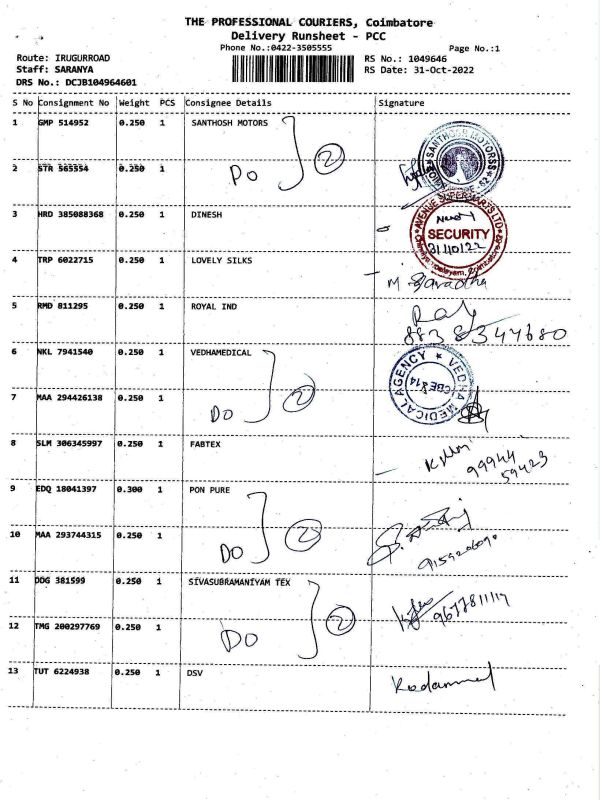 THE PROFESSIONAL COURIERS, Coimbatore
Delivery Runsheet - PCC
Phone No.:0422-3505555
Page No.:1
Route: IRUGURROAD
RS No.: 1049646
Staff: SARANYA
RS Date: 31-Oct-2022
DRS No.: DCJB104964601
S No Consignment No Weight PCS Consignee Details Signature
1 GMP 514952 0.250 1 SANTHOSH MOTORS
SANTHOSH MOTORSS
2 STR 565554 0.250 1 Do 2
3 HRD 385088368 0.250 1 DINESH
AVENUE SUPERMARTS LTD
SECURITY
31/10/22
4 TRP 6022715 0.250 1 LOVELY SILKS
5 RMD 811295 0.250 1 ROYAL IND
8838347680
6 NKL 7941540 0.250 1 VEDHAMEDICAL
VEDHA MEDICAL AGENCY
7 MAA 294426138 0.250 1 Do 2
8 SLM 306345997 0.250 1 FABTEX
99944
59423
9 EDQ 18041397 0.300 1 PON PURE
10 MAA 293744315 0.250 1 Do 2
11 DDG 381599 0.250 1 SIVASUBRAMANIYAM TEX
12 TMG 200297769 0.250 1 Do 2
13 TUT 6224938 0.250 1 DSV